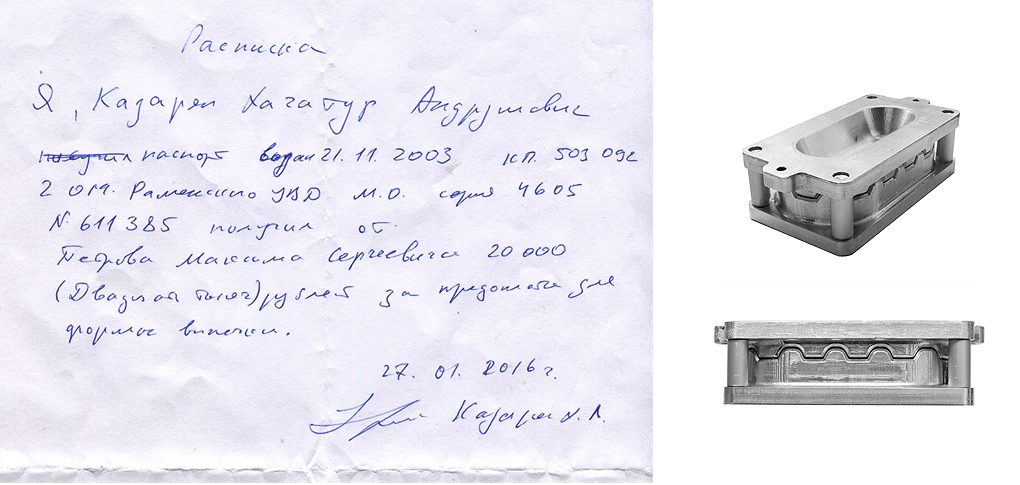 Расписка
Я, Казарян Хачатур Андрушевич
паспорт выдан 21.11.2003 КП. 503 092
2 ОМ. Раменского УВД М.О. серия 4605
№ 611385 получил от
Петрова Максима Сергеевича 20 000
(Двадцать тысяч) рублей за предоплата для
формы выпечки.
27. 01. 2016 г.
Казарян Х. А.